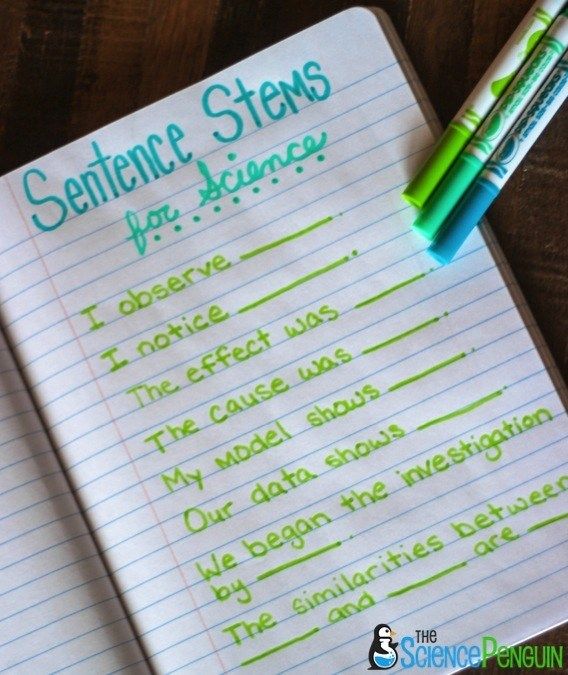 Sentence Stems
for Science
I observe ______.
I notice ______.
The effect was ______.
The cause was ______.
My model shows ______.
Our data shows ______.
We began the investigation
by ______.
The similarities between
______ and ______ are ______
THE
SCIENCEPENGUIN